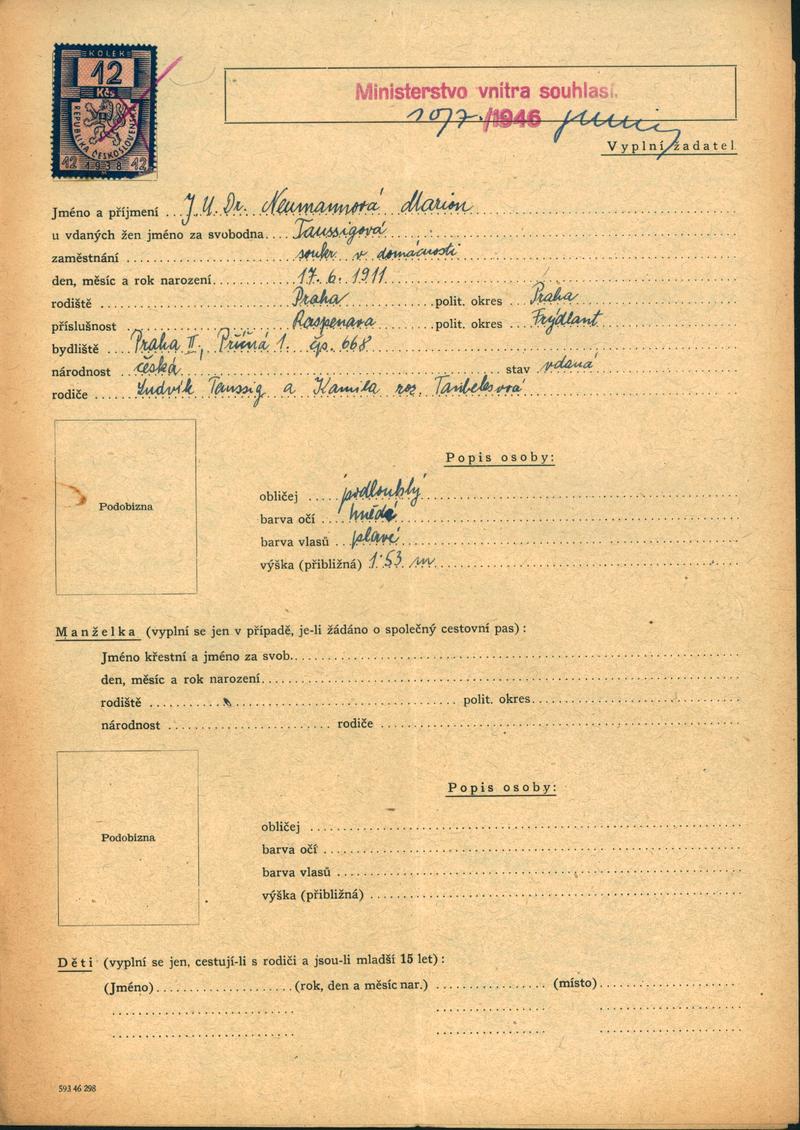 KOLEK
12
Kčs
REPUBLIKA ČESKOSLOVENSKÁ
12 1938 12
Ministerstvo vnitra souhlasí.
10/7. 1946
Vyplní žadatel
Jméno a příjmení J.U.Dr. Neumannová Marion
u vdaných žen jméno za svobodna Taussigová
zaměstnání soukr. v domácnosti
den, měsíc a rok narození 17. 6. 1911
rodiště Praha polit. okres Praha
příslušnost Raspenava polit. okres Frýdlant
bydliště Praha II., Příčná 1. čp. 668
národnost česká stav vdaná
rodiče Ludvík Taussig a Kamila roz.
Popis osoby:
Podobizna
obličej podlouhlý
barva očí hnědé
barva vlasů plavé
výška (přibližná) 1˙53 m
Manželka (vyplní se jen v případě, je-li žádáno o společný cestovní pas):
Jméno křestní a jméno za svob.
den, měsíc a rok narození
rodiště polit. okres
národnost rodiče
Popis osoby:
Podobizna
obličej
barva očí
barva vlasů
výška (přibližná)
Děti (vyplní se jen, cestují-li s rodiči a jsou-li mladší 15 let):
(Jméno) (rok, den a měsíc nar.) (místo)
593 46 298